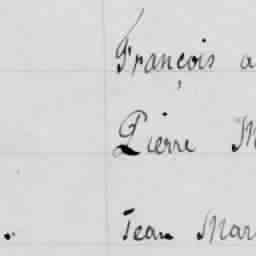 François a
Pierre M
Jean Mar